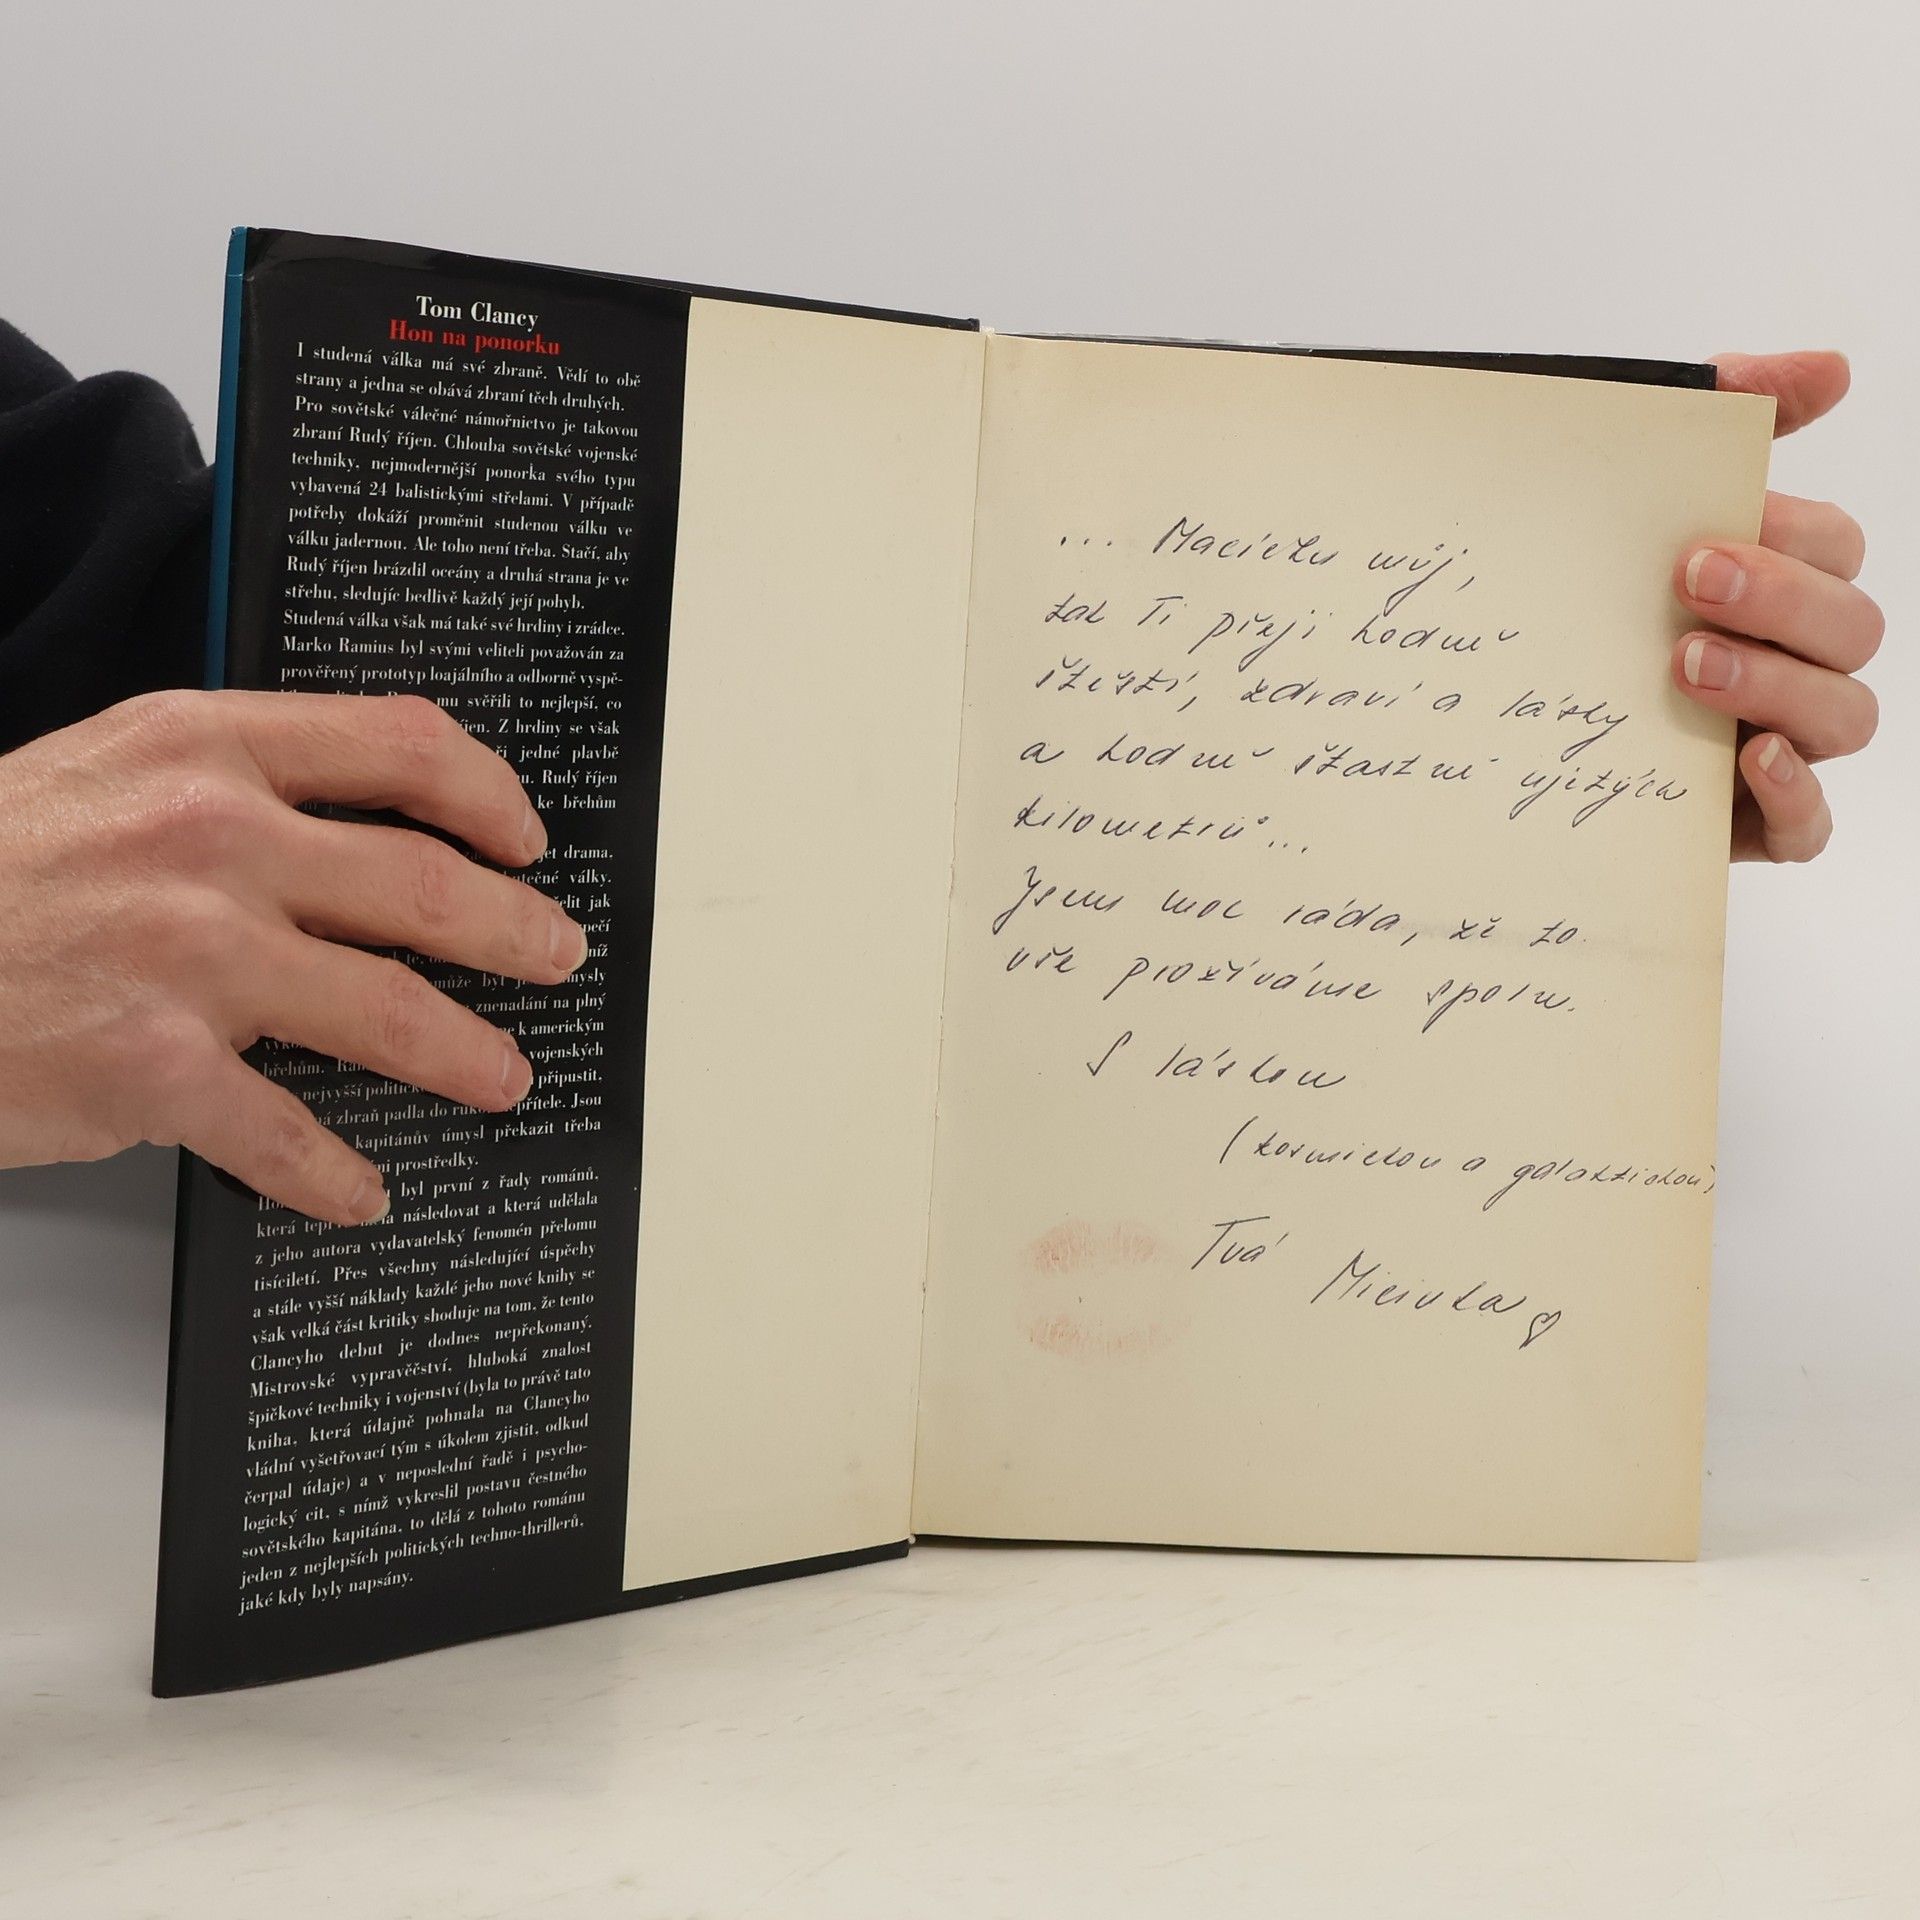 Tom Clancy
Hon na ponorku
I studená válka má své zbraně. Vědí to obě
strany a jedna se obává zbraní těch druhých.
Pro sovětské válečné námořnictvo je takovou
zbraní Rudý říjen. Chlouba sovětské vojenské
techniky, nejmodernější ponorka svého typu
vybavená 24 balistickými střelami. V případě
potřeby dokáží proměnit studenou válku ve
válku jadernou. Ale toho není třeba. Stačí, aby
Rudý říjen brázdil oceány a druhá strana je ve
střehu, sledujíc bedlivě každý její pohyb.
Studená válka však má také své hrdiny i zrádce.
Marko Ramius byl svými veliteli považován za
prověřený prototyp loajálního a odborně vyspě-
mu svěřili to nejlepší, co
Z hrdiny se však
jedné plavbě
Rudý říjen
ke břehům
drama,
války.
jak
znenadání na plný
k americkým
vojenských
břehům. připustit,
nejvyšší
zbraň padla do Jsou
kapitánův úmysl překazit třeba
prostředky.
byl první z řady románů,
která následovat a která udělala
z jeho autora vydavatelský fenomén přelomu
tisíciletí. Přes všechny následující úspěchy
a stále vyšší náklady každé jeho nové knihy se
však velká část kritiky shoduje na tom, že tento
Clancyho debut je dodnes nepřekonaný.
Mistrovské vypravěčství, hluboká znalost
špičkové techniky i vojenství (byla to právě tato
kniha, která údajně pohnala na Clancyho
vládní vyšetřovací tým s úkolem zjistit, odkud
čerpal údaje) a v neposlední řadě i psycho-
logický cit, s nímž vykreslil postavu čestného
sovětského kapitána, to dělá z tohoto románu
jeden z nejlepších politických techno-thrillerů,
jaké kdy byly napsány.
... Macíčku můj,
tak Ti přeji hodně
štěstí, zdraví a lásky
a hodně šťastně ujetých
kilometrů...
Jsem moc ráda, že to
vše prožíváme spolu.
S láskou
(kosmickou a galaktickou)
Tvá
Micinka